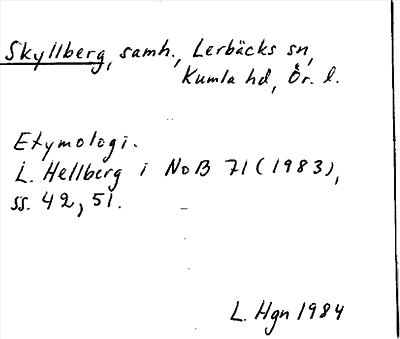 Skyllberg, samh., Lerbäcks sn,
Kumla hd, Ör. l.
Etymologi.
L. Hellberg i NoB 71 (1983),
ss. 42, 51.
L. Hgn 1984